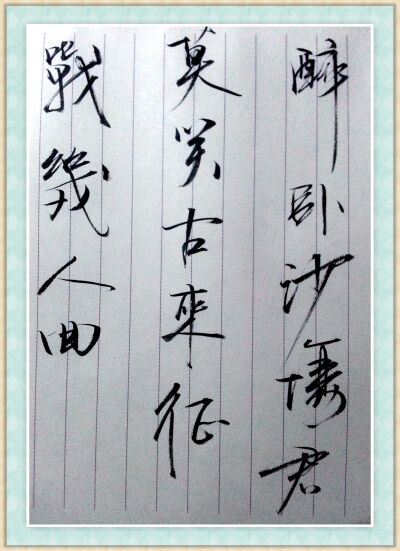 醉卧沙場君
莫笑古來征
戰幾人回